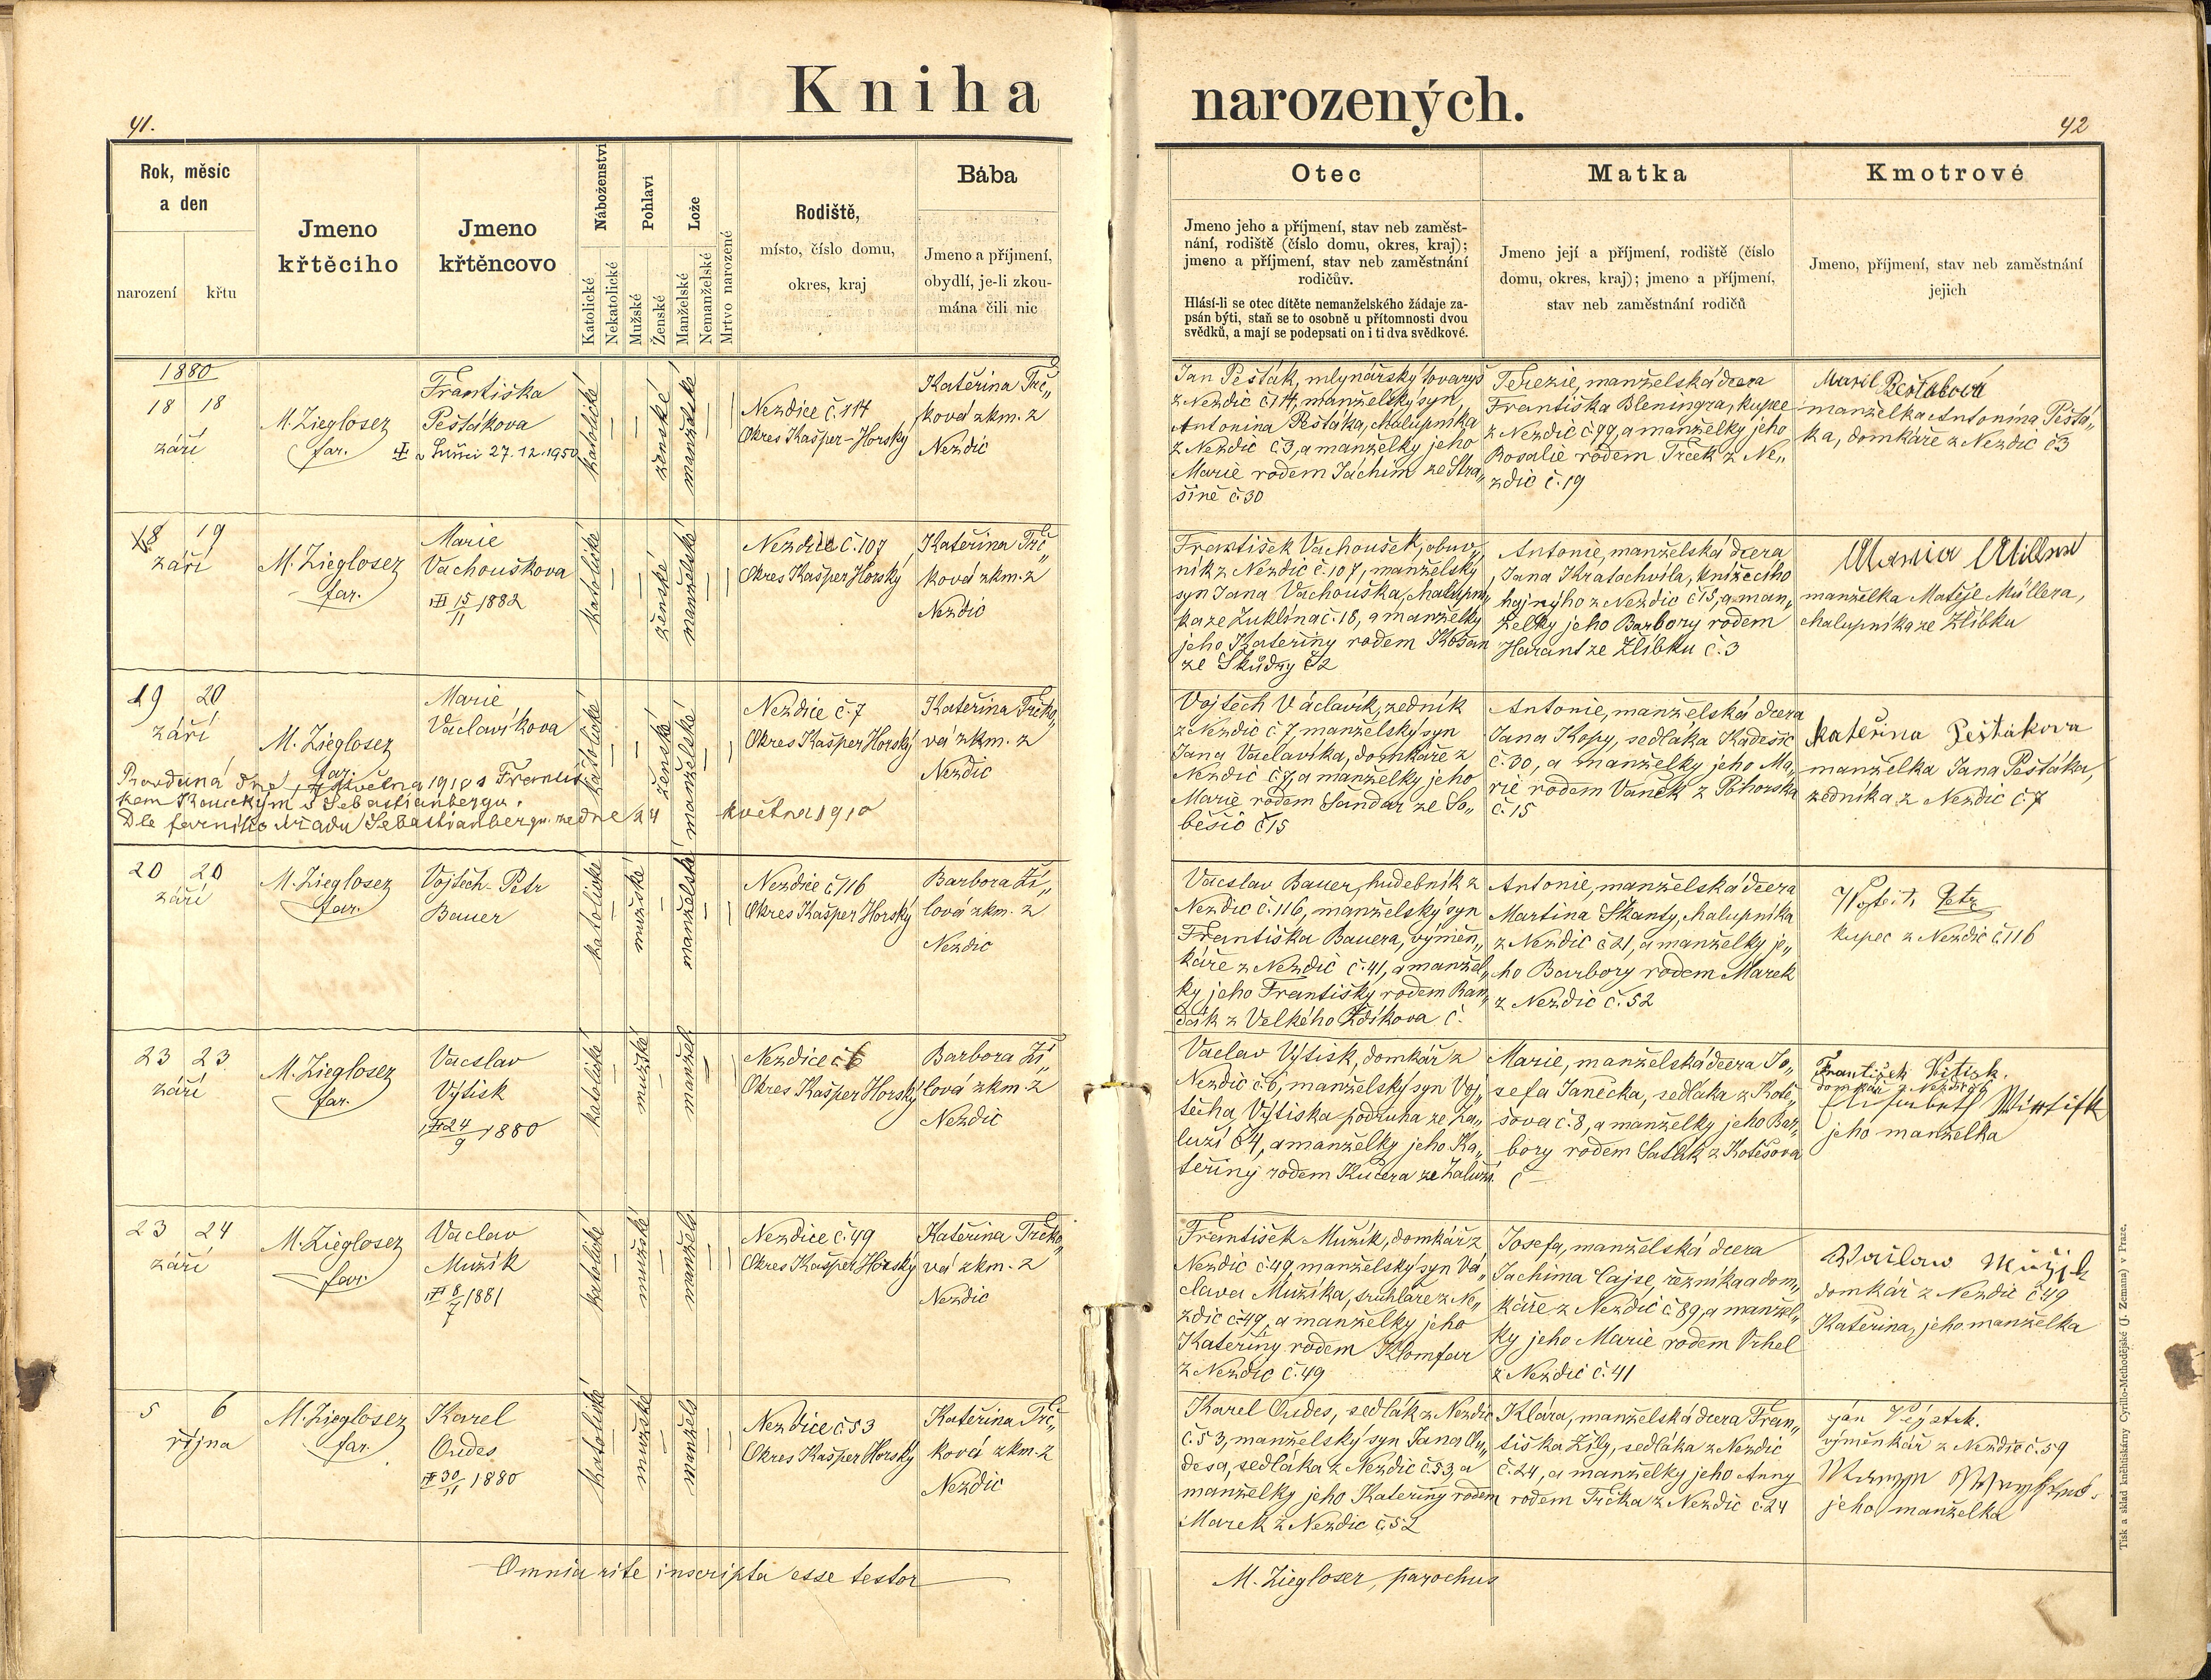 41.
Kniha
narozených.
42
Rok, měsíc
a den
narození
křtu
Jmeno
křtěcího
Jmeno
křtěncovo
Náboženství
Katolické
Nekatolické
Pohlaví
Mužské
Ženské
Lože
Manželské
Nemanželské
Mrtvo narozené
Rodiště,
místo, číslo domu,
okres, kraj
Bába
Jmeno a příjmení,
obydlí, je-li zkou-
mána čili nic
Otec
Jmeno jeho a příjmení, stav neb zaměst-
nání, rodiště (číslo domu, okres, kraj);
jmeno a příjmení, stav neb zaměstnání
rodičův.
Hlásí-li se otec dítěte nemanželského žádaje za-
psán býti, staň se to osobně u přítomnosti dvou
svědků, a mají se podepsati on i ti dva svědkové.
Matka
Jmeno její a příjmení, rodiště (číslo
domu, okres, kraj); jmeno a příjmení,
stav neb zaměstnání rodičů
Kmotrové
Jmeno, příjmení, stav neb zaměstnání
jejich
1880
18 18
září
M. Ziegloser
far.
Františka
Pešťákova
v Sušici 27.12.1950
katolické
ženské
manželské
Nezdice č. 114
Okres Kašper-Horský
Kateřina Trč„
ková zkm. z
Nezdic
Jan Pešťák, mlynářský tovaryš
z Nezdic č 114, manželský syn
Antonína Pešťáka, chalupníka
z Nezdic č 3, a manželky jeho
Marie rodem Jáchim ze Stra„
šině č. 30
Terezie, manželská dcera
Františka Bleningra, kupce
z Nezdic č. 99, a manželky jeho
Rosalie rodem Trček z Ne„
zdic č. 19
manželka Antonína Pešťá„
ka, domkáře z Nezdic č3
18 19
září
M. Ziegloser
far.
Marie
Vachouškova
15/11 1882
katolické
ženské
manželské
Nezdice č. 107
Okres Kašper Horský
Kateřina Trč„
ková zkm. z
Nezdic
František Vachoušek, obuv„
ník z Nezdic č. 107, manželský
syn Jana Vachouška, chalupní„
ka ze Zuklína č. 18, a manželky
jeho Kateřiny rodem Košan
ze Škůdry č2
Antonie, manželská dcera
Jana Kratochvíla, knížecího
hajného z Nezdic č 15, a man„
želky jeho Barbory rodem
Harant ze Žlíbku č. 3
manželka Matěje Müllera,
chalupníka ze Žlíbku
19 20
září
M. Ziegloser
far.
Marie
Vaclavíkova
katolické
ženské
manželské
Nezdice č. 7
Okres Kašper Horský
Kateřina Trčko„
vá zkm. z
Nezdic
Provdaná dne května 1910 s Františ
kem Kouckým v Sebastianbergu.
Dle farního úřadu Sebastianbergu ze dne 24 května 1910
Vojtěch Václavík, zedník
z Nezdic č 7, manželský syn
Jana Václavíka, domkáře z
Nezdic č. 7, a manželky jeho
Marie rodem Šandar ze So„
běšic č 15
Antonie, manželská dcera
Jana Kopy, sedláka Kadešic
č. 30, a manželky jeho Ma„
rie rodem Vaněk z Pohorska
č. 15
Kateřina Peštákova
manželka Jana Pešťáka,
zedníka z Nezdic č. 7
20 20
září
M. Ziegloser
far.
Vojtěch-Petr
Bauer
katolické
mužské
manželské
Nezdice č 116
Okres Kašper Horský
Barbora Ží„
lová zkm. z
Nezdic
Vacslav Bauer, hudebník z
Nezdic č. 116, manželský syn
Františka Bauera, výměn„
káře z Nezdic č. 41, a manžel„
ky jeho Františky rodem Ran„
dák z Velkého Zdíkova č.
Antonie, manželská dcera
Martina Škanty, chalupníka
z Nezdic č 21, a manželky je„
ho Barbory rodem Marek
z Nezdic č. 52
Petr
kupec z Nezdic č. 116
23 23
září
M. Ziegloser
far.
Vacslav
Výtisk
24/9 1880
katolické
mužské
manžels
Nezdice č 6
Okres Kašper Horský
Barbora Ží„
lová zkm. z
Nezdic
Vaclav Výtisk, domkář z
Nezdic č. 6, manželský syn Voj„
těcha Výtiska podruha ze Za„
luží č 4, a manželky jeho Ka„
teřiny rodem Kučera ze Zaluží
Marie, manželská dcera Jo„
sefa Janečka, sedláka z Kotě„
šova č. 8, a manželky jeho Bar„
bory rodem Saták z Kotěšova
č –
František Vitisk.
domkář z Nezdic č 6
jeho manželka
23 24
září
M. Ziegloser
far.
Vaclav
Mužík
8/7 1881
katolické
mužské
manžels
Nezdice č. 49
Okres Kašper Horský
Kateřina Trčko„
vá zkm. z
Nezdic
František Mužík, domkář z
Nezdic č. 49, manželský syn Vá„
clava Mužíka, truhláře z Ne„
zdic č 49, a manželky jeho
Kateřiny rodem Klomfar
z Nezdic č. 49
Josefa, manželská dcera
Jachima Cajse, řezníka a dom„
káře z Nezdic č. 89, a manžel„
ky jeho Marie rodem Vrhel
z Nezdic č. 41
domkář z Nezdic č 49
Kateřina, jeho manželka
5 6
října
M. Ziegloser
far.
Karel
Oudes
30/11 1880
katolické
mužské
manžels
Nezdice č 53
Okres Kašper Horský
Kateřina Trč„
ková zkm. z
Nezdic
Karel Oudes, sedlák z Nezdic
č. 53, manželský syn Jana Ou„
desa, sedláka z Nezdic č. 53, a
manželky jeho Kateřiny rodem
Marek z Nezdic č. 52
Klára, manželská dcera Fran„
tiška Žíly, sedláka z Nezdic
č. 24, a manželky jeho Anny
rodem Trčka z Nezdic č. 24
výměnkář z Nezdic č. 59
jeho manželka
Omnia rite inscripta esse testor
M. Ziegloser, parochus
Tisk a sklad knihtiskárny Cyrillo-Methodějské (J. Zemana) v Praze.